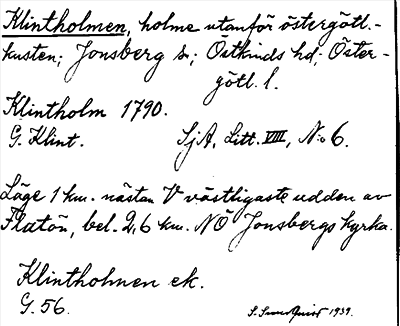 Klintholmen, holme utanför östergötl.-
kusten; Jonsberg s.; Östkinds hd; Öster-
götl. l.
Klintholm 1790.
G. Klint. SjA, Litt. VIII, N:o 6.
Läge 1 km. nästan V västligaste udden av
Flatön, bel. 2,6 km. NÖ Jonsbergs kyrka.
Klintholmen ek.
G. 56. S. 1939.